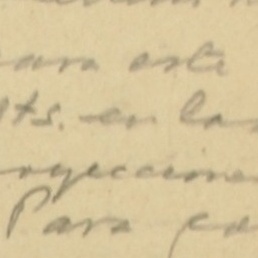 para este
ts. en las
oyeccione
Para co